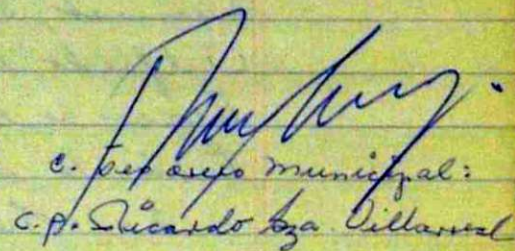 C. Tesorero municipal:
C.P. Ricardo Gza. Villarreal